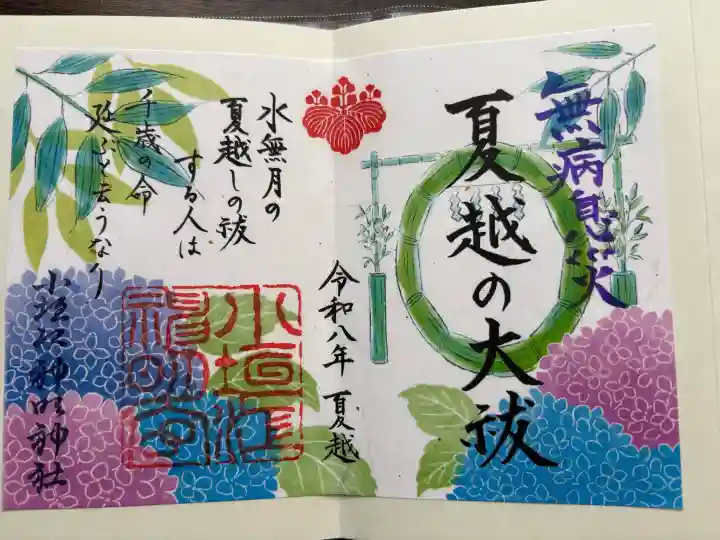 無病息災
夏越の大祓
令和八年 夏越
水無月の
夏越しの祓
する人は
千歳の命
延ぶと云うなり
小垣江神明神社
小垣江
神明宮